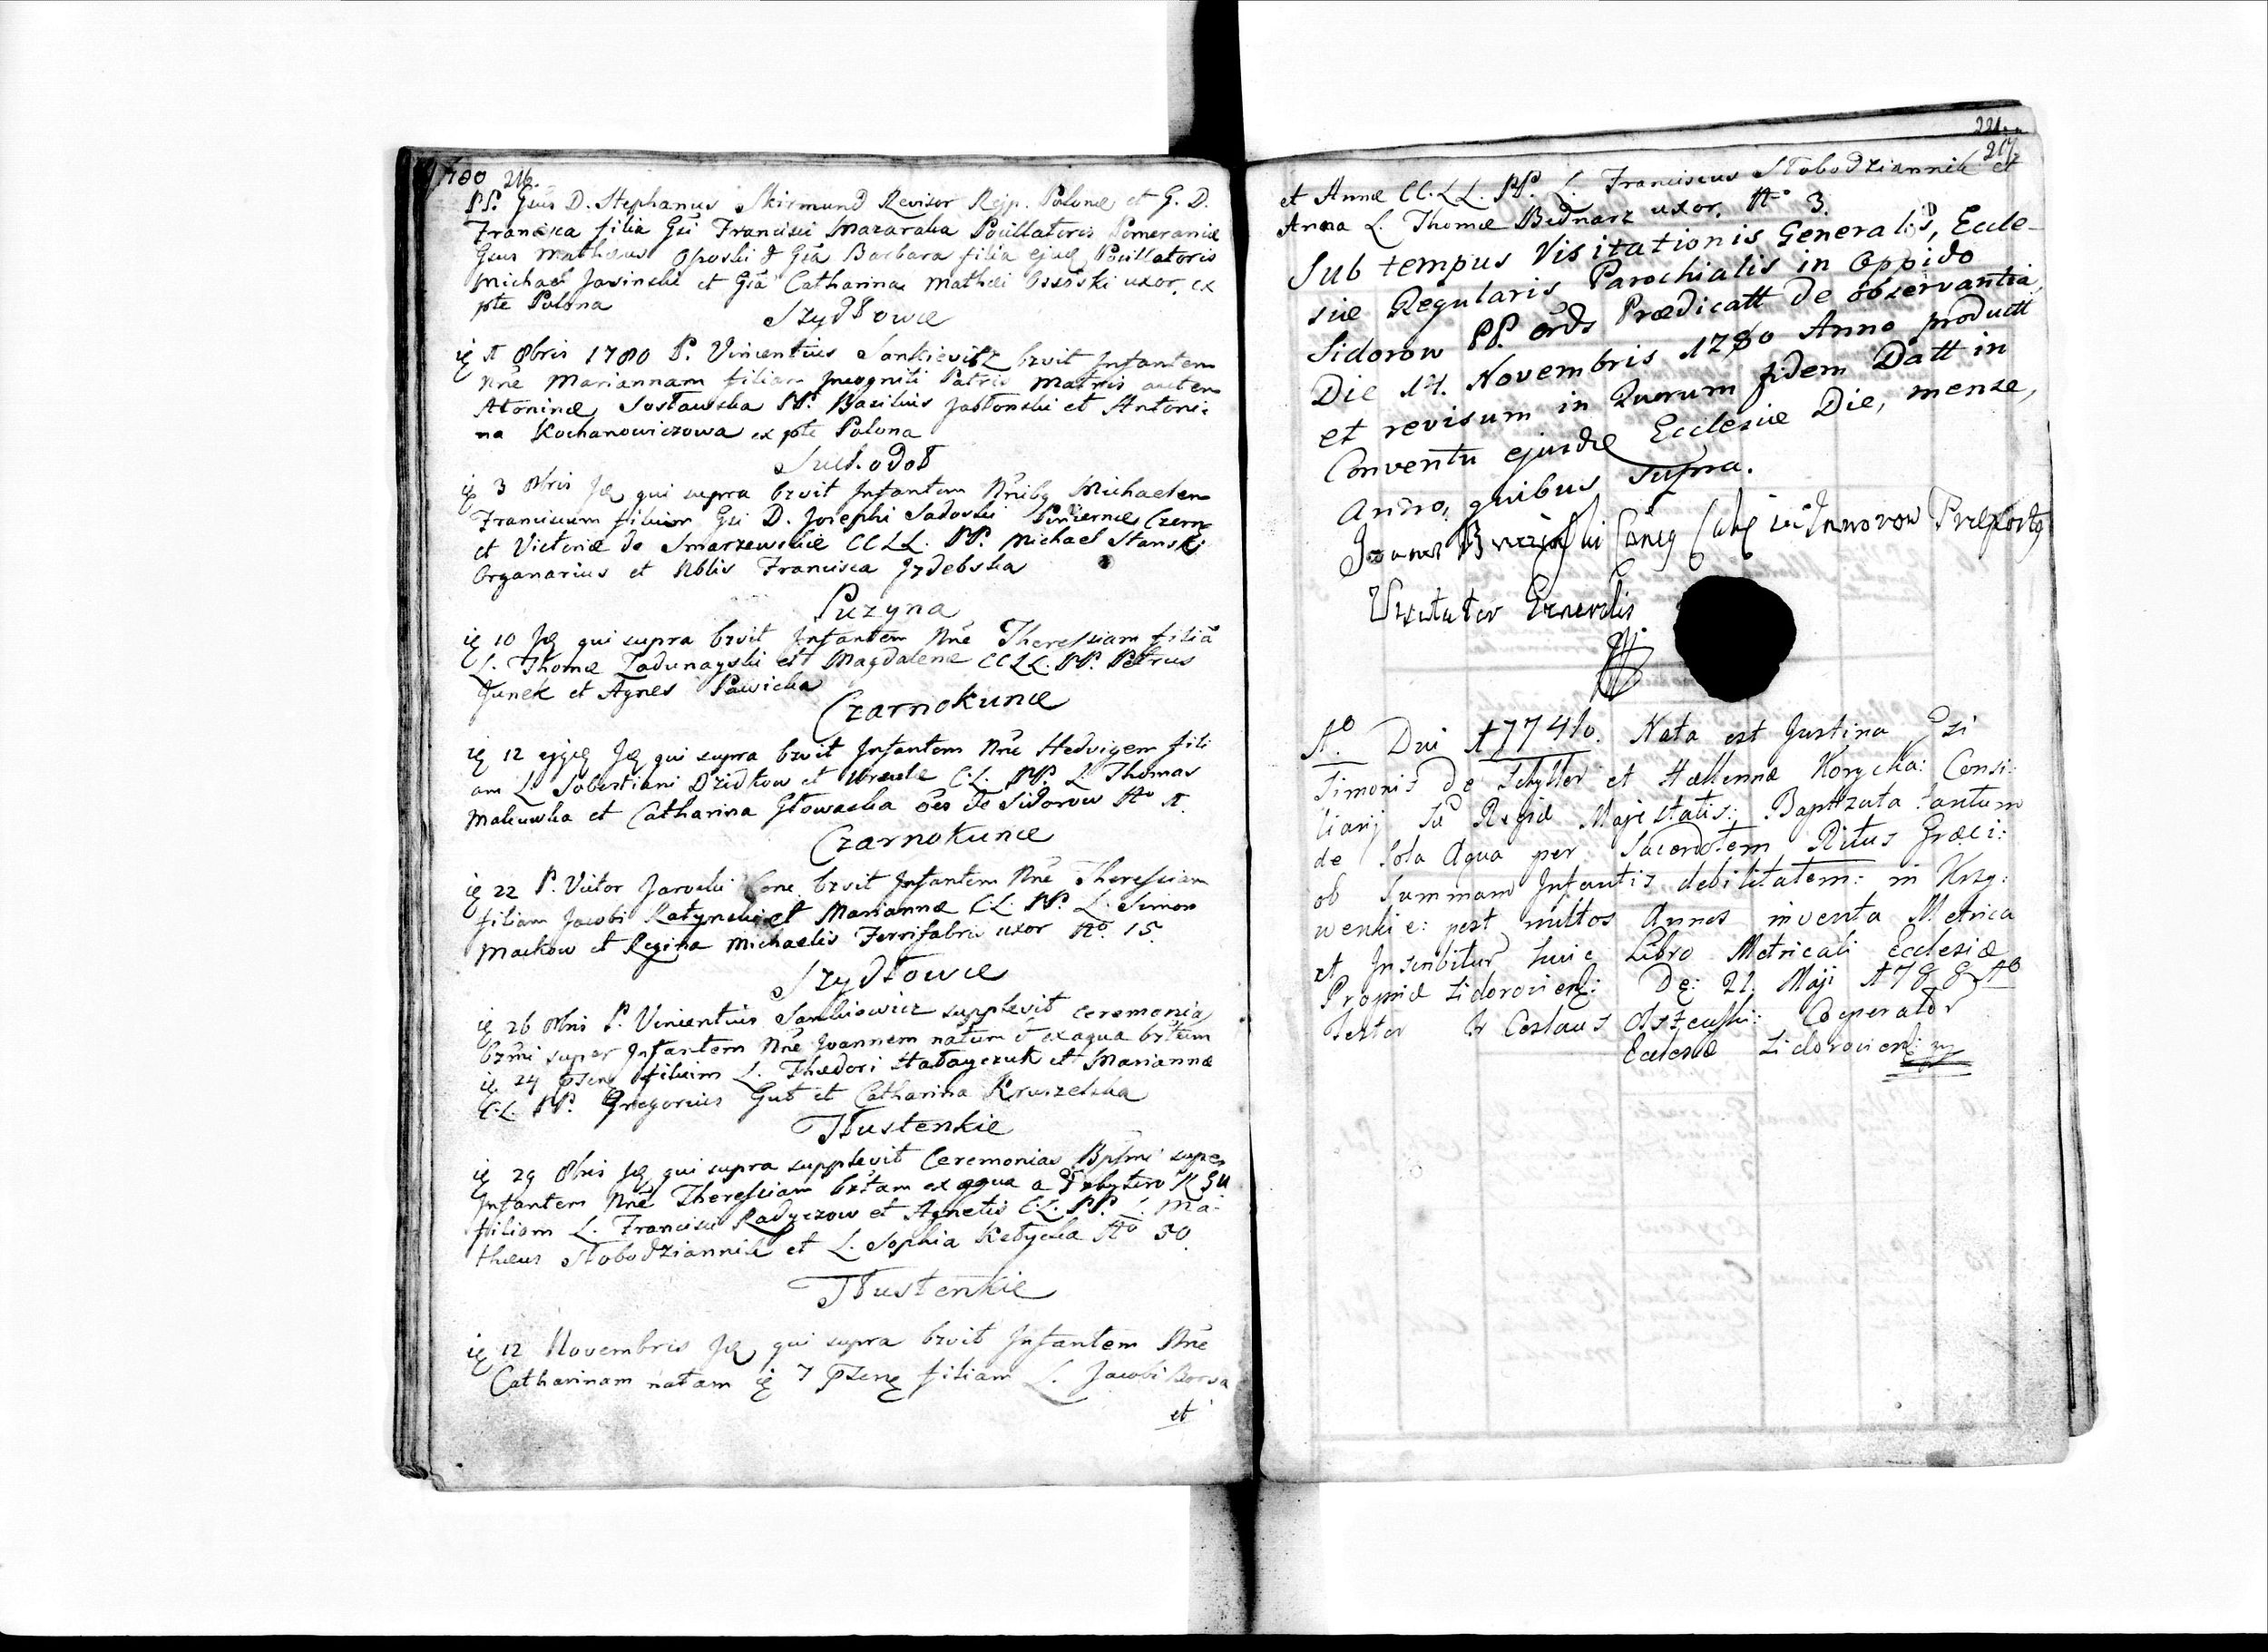 1780 216.
PP. Gsus D. Stephanus Skirmund Revisor Rejp. Polonæ et G. D.
Francisca filia Gsi Francisci Mazaraka Pocillatoris Pomeraniæ
Gsus Matheus Oposki & Gsa Barbara filia ejus Pocillatoris
Michael Jasinski et Gsa Catharina Mathei Ossoski uxor, ex
pte Polona
Szydłowce
1 8bris 1780 P. Vincentius Sankievitz bzvit Infantem
Nne Mariannam filiam Incogniti Patris Matris autem
Atoninæ Sosłauska PP. Basilius Jabłonski et Antoni-
na Kochanowiczowa ex pte Polona
Suchodoł
3 8bris Jd qui supra bzvit Infantem Nnibq Michaelem
Franciscum filium Gsi D. Josephi Sadoski Pincernæ Czern
et Victoriæ de Smarzewskie CCLL. PP. Michael Stanski
Organarius et Nblis Francisca Jzdebska
Puzyna
10 Jd qui supra bzvit Infantem Nne Theressiam filiā
L. Thomæ Zadunayski et Magdalenæ CCLL. PP. Petrus
Junek et Agnes Pawicka
Czarnokunce
12 ejq Jd qui supra bzvit Infantem Nne Hedvigem fili
am L. Sobestiani Dzidkow et Ursule C.L. PP. L. Thomas
Makuwka et Catharina Głowacka oes de Sidorow No 1.
Czarnokunce
22 P. Victor Jarocki Conc. bzvit Infantem Nne Theressiam
filiam Jacobi Ratynski et Mariannæ C.L. PP. L. Simon
Mackow et Regina Michaelis Ferrifabri uxor No. 15.
Szydłowce
26 8bris P. Vincentius Sankiewicz supplevit ceremonia
bzmi super Infantem Nne Joannem natum & ex aqua bztum
24 psenq filium L. Thedori Hałayczuk et Mariannæ
C.L. PP. Gregorius Gut et Catharina Kruszelska
Tłustenkie
29 8bris Jd qui supra supplevit Ceremonias Bptmi super
Infantem Nne Theressiam bztam ex aqua a Prbytero R Gu
filiam L. Francisci Radyczow et Agnetis C.L. PP. L. Ma-
theus Słobodziannik et L. Sophia Ketycka No 30.
Tłustenkie
12 Novembris Jd qui supra bzvit Infantem Nne
Catharinam natam 7 psenq filiam L. Jacobi Borsa
et
221.
217
et Annæ CC.LL. PP. L. Franciscus Słobodziannik et
Anna L. Thomæ Bednarz uxor, No 3.
Sub tempus Visitationis Generalis, Eccle-
siæ Regularis Parochialis in Oppido
Sidorow PP. Ords Prædicatt de observantia,
Die 14. Novembris 1780 Anno productt
et revisum in Quorum fidem Datt in
Conventu ejusde Ecclesiæ Die, mense,
Anno, quibus supra.
Visitator Generalis
Ao. Dni 1774to. Nata est Justina Gsi
Simonis De Schyller et Hællennæ Korycka: Consi-
liarij Sæ Regiæ Majestatis: Baptizata tantum
de Sola Aqua per Sacerdotem Ritus Græci:
ob Summam Infantis debilitatem: in Krzy:
wenkie: post multos Annos inventa Metrica
et Inscribitur huic Libro Metricali Ecclesiæ
Propriæ Sidoroviens: De: 21. Maji 1788 Ao
Testor Fr Ceslaus Cooperator
Ecclesiæ Sidoroviens: